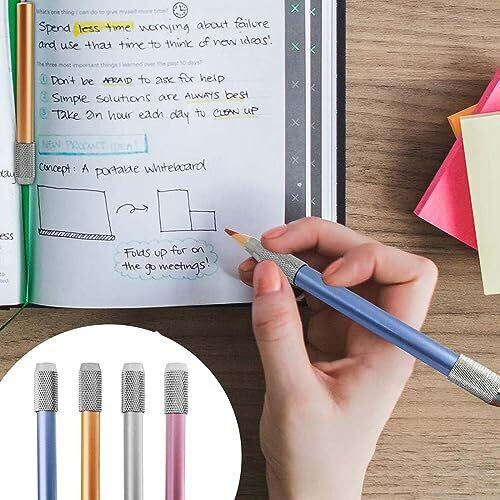 What's one action you can to do to give myself more time?
Spend less time worrying about failure
and use that time to think of new ideas!
The three most important things I learned over the past 10 days?
① Don't be AFRAID to ask for help
② Simple solutions are ALWAYS best
③ Take an hour each day to CLEAN UP
NEW PRODUCT IDEA!
Concept: A portable whiteboard
Folds up for on
the go meetings!